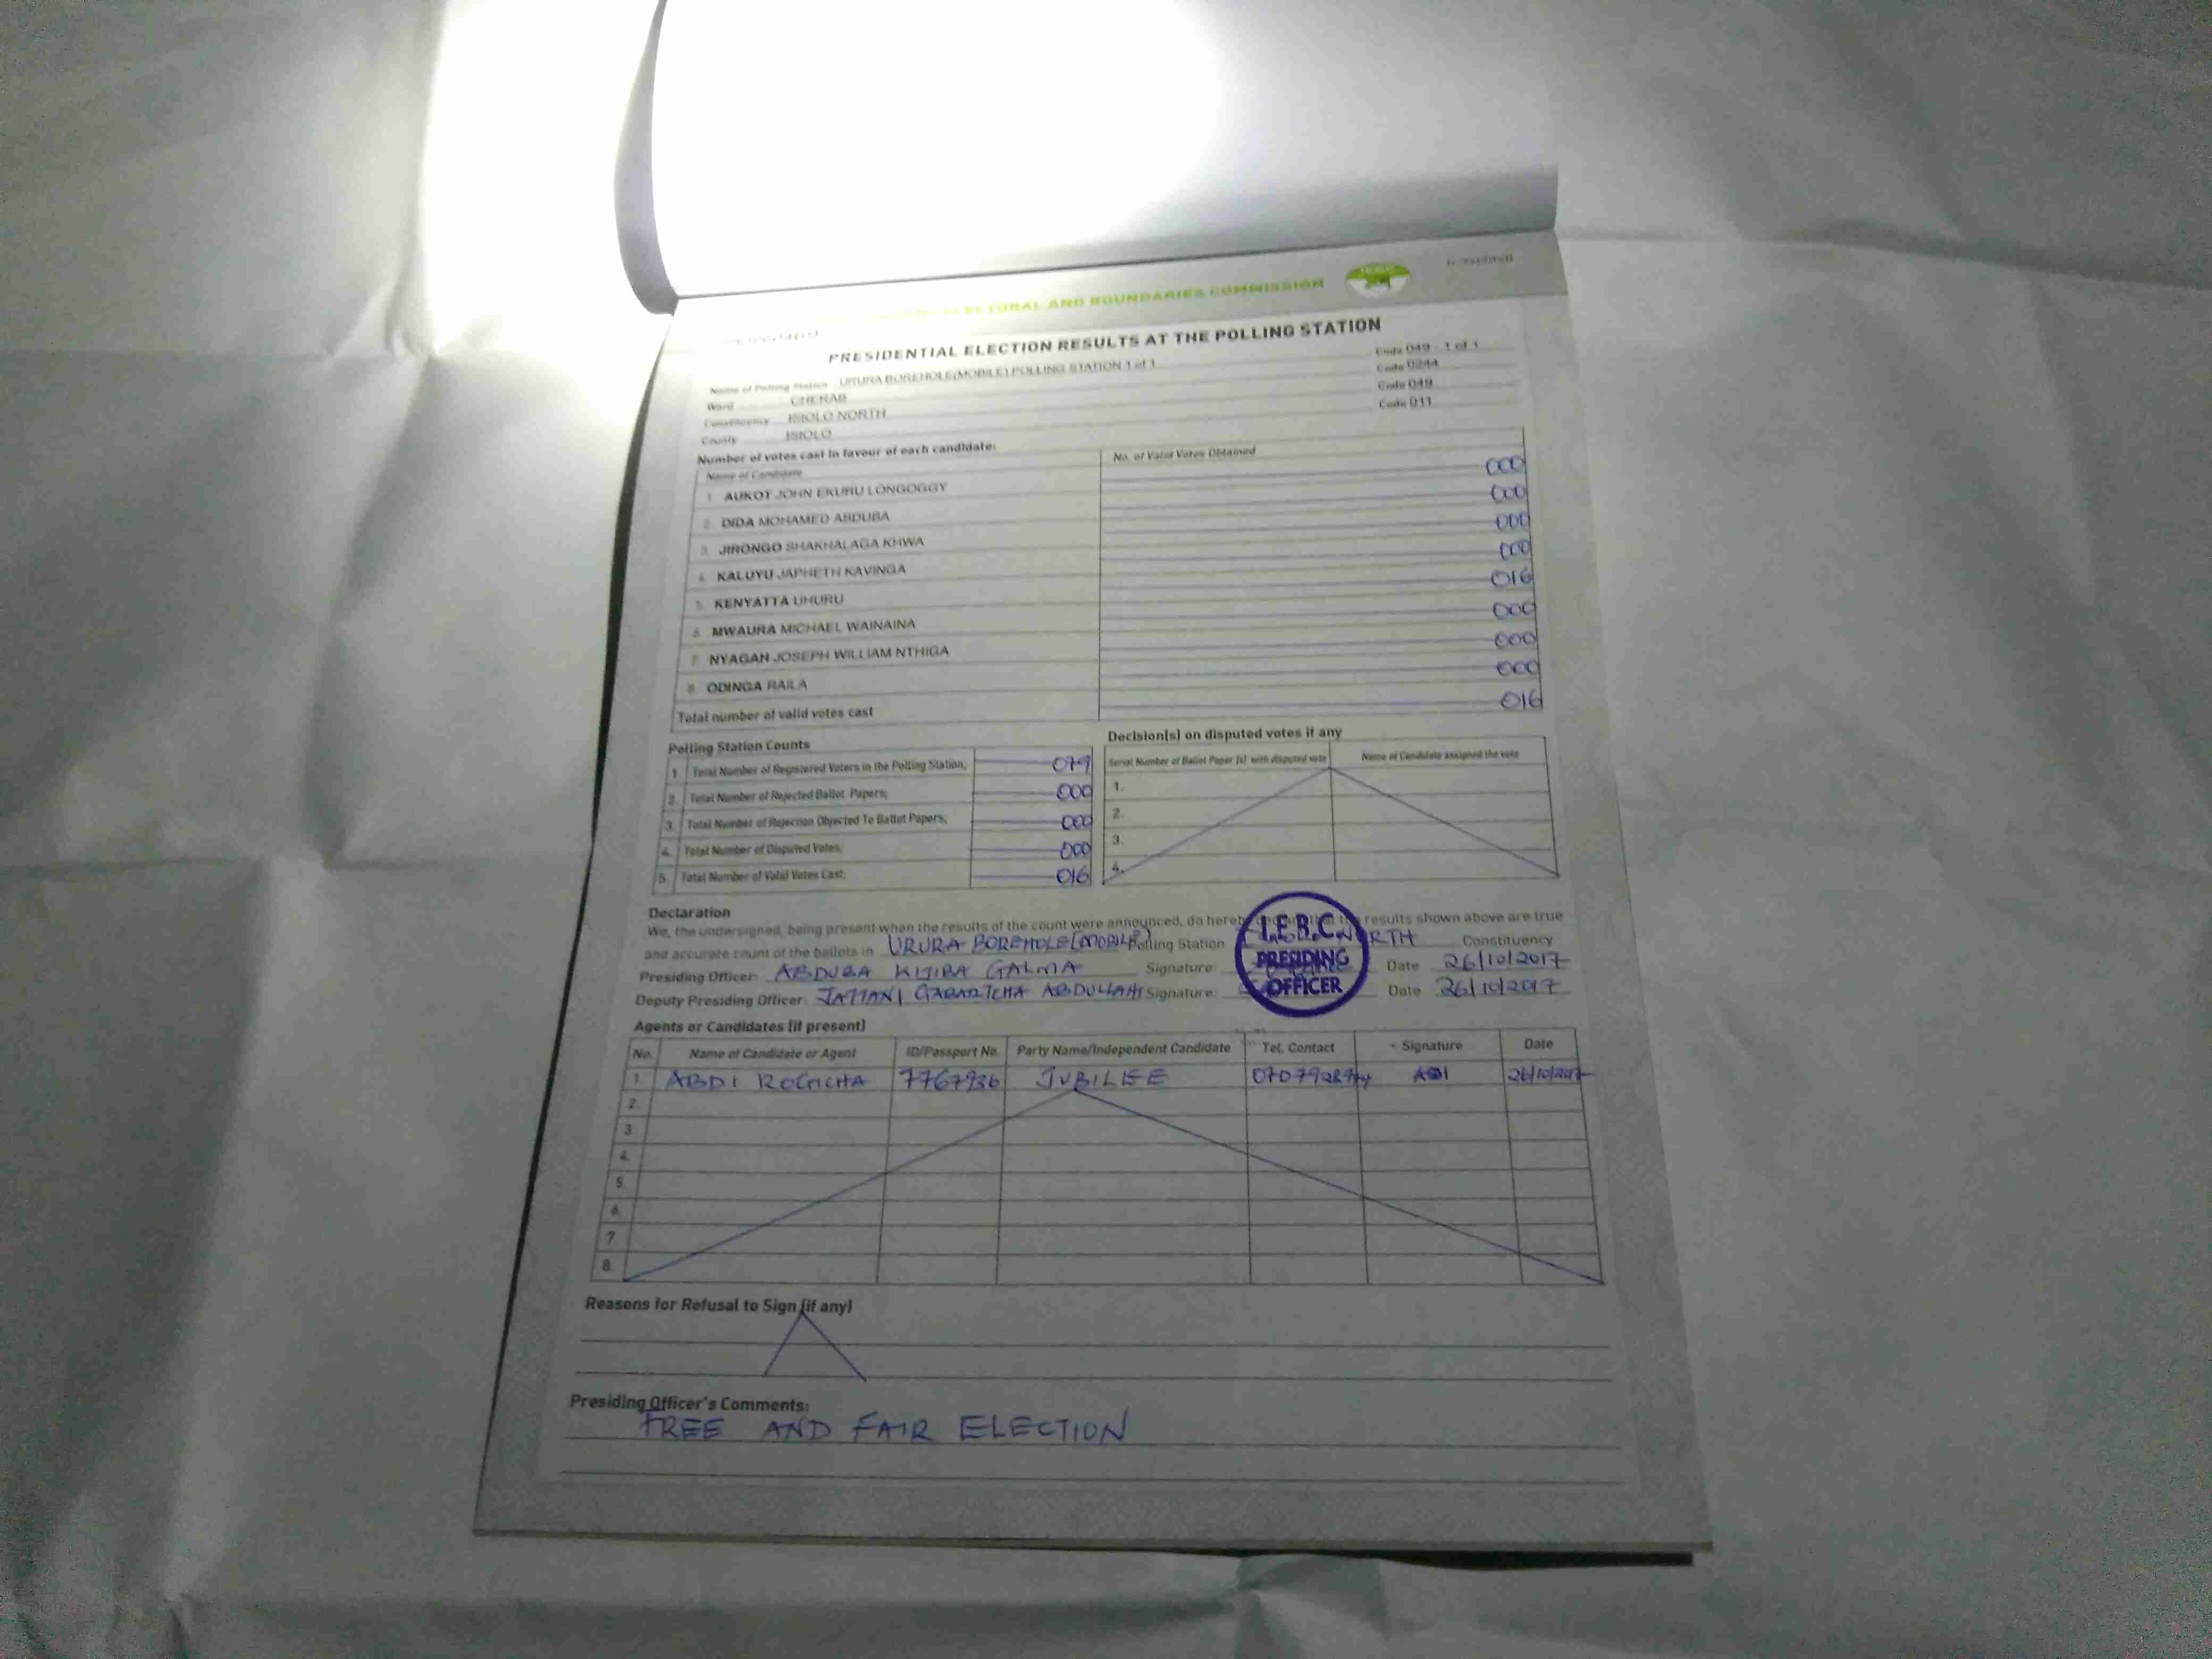 ELECTORAL AND BOUNDARIES COMMISSION
PRESIDENTIAL ELECTION RESULTS AT THE POLLING STATION
Name of Polling Station URURA BOREHOLE(MOBILE) POLLING STATION 1 of 1 Code 049 - 1 of 1
Ward CHERAB Code 0244
Constituency ISIOLO NORTH Code 049
County ISIOLO Code 011
Number of votes cast in favour of each candidate:
Name of Candidate No. of Valid Votes Obtained
1. AUKOT JOHN EKURU LONGOGGY 000
2. DIDA MOHAMED ABDUBA 000
3. JIRONGO SHAKHALAGA KHWA 000
4. KALUYU JAPHETH KAVINGA 000
5. KENYATTA UHURU 016
6. MWAURA MICHAEL WAINAINA 000
7. NYAGAH JOSEPH WILLIAM NTHIGA 000
8. ODINGA RAILA 000
Total number of valid votes cast 016
Polling Station Counts
1. Total Number of Registered Voters in the Polling Station; 079
2. Total Number of Rejected Ballot Papers; 000
3. Total Number of Rejection Objected To Ballot Papers; 000
4. Total Number of Disputed Votes; 000
5. Total Number of Valid Votes Cast; 016
Decision(s) on disputed votes if any
Serial Number of Ballot Paper (s) with disputed vote Name of Candidate assigned the vote
1.
2.
3.
4.
Declaration
We, the undersigned, being present when the results of the count were announced, do hereby declare that the results shown above are true
and accurate count of the ballots in URURA BOREHOLE (MOBILE) Polling Station NORTH Constituency
Presiding Officer: ABDUBA KIJIBA GALMA Signature: Date 26/10/2017
Deputy Presiding Officer: JATTANI GABARTCHA ABDULLAHI Signature: Date 26/10/2017
I.E.B.C.
PRESIDING
OFFICER
Agents or Candidates (if present)
No. Name of Candidate or Agent ID/Passport No. Party Name/Independent Candidate Tel. Contact Signature Date
1. ABDI ROGICHA 7767936 JUBILEE ABDI 26/10/2017
2.
3.
4.
5.
6.
7.
8.
Reasons for Refusal to Sign (if any)
Presiding Officer's Comments:
FREE AND FAIR ELECTION